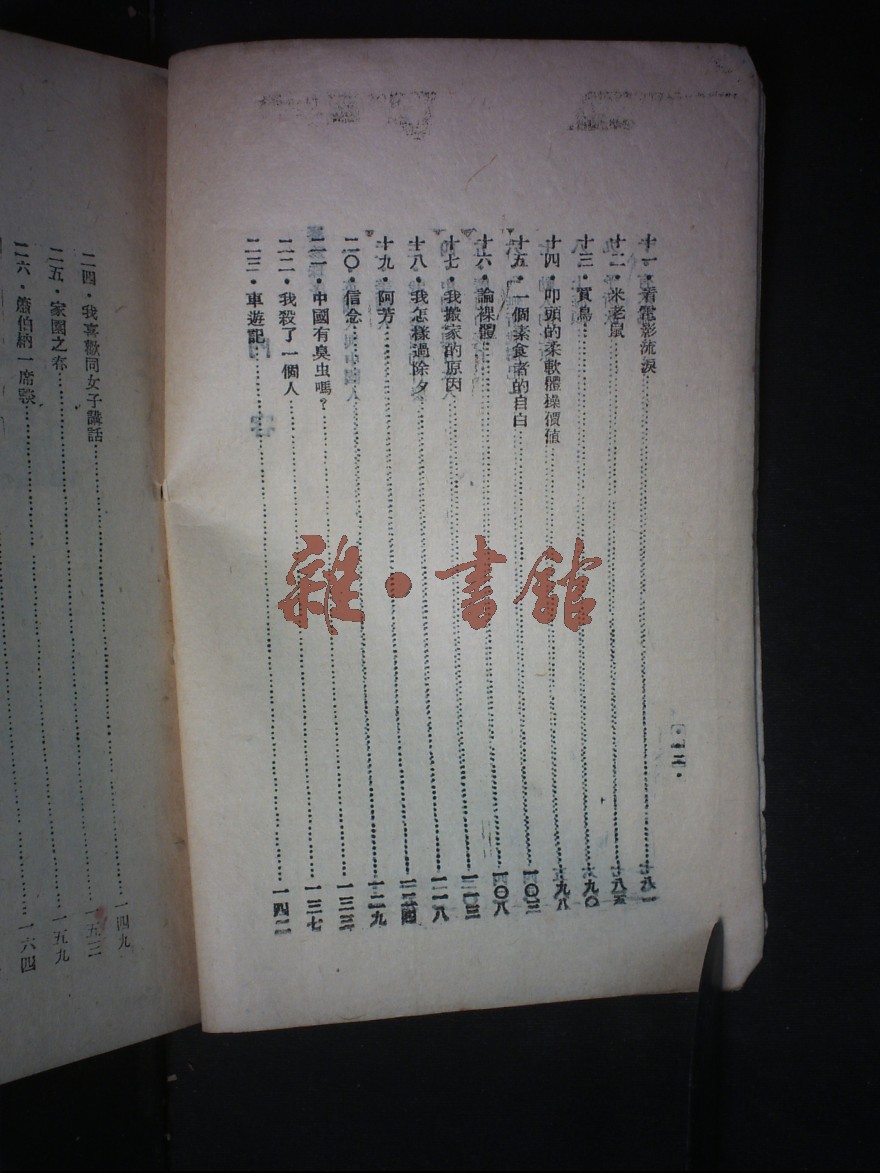 十一·看電影流淚
十二·米老鼠
十三·買鳥
十四·叩頭的柔軟體操價值
十五·一個素食者的自白
十六·論裸體
十七·我搬家的原因
十八·我怎樣過除夕
十九·阿芳
二〇·信念
二一·中國有臭虫嗎?
二二·我殺了一個人
二三·車遊記
九〇
九八
一〇三
一〇八
一一八
一二九
一三三
一三七
一四二
·二·
雜·書館
二四·我喜歡同女子講話
二五·家園之春
二六·蕭伯納一席談
一四九
一五三
一五九
一六四